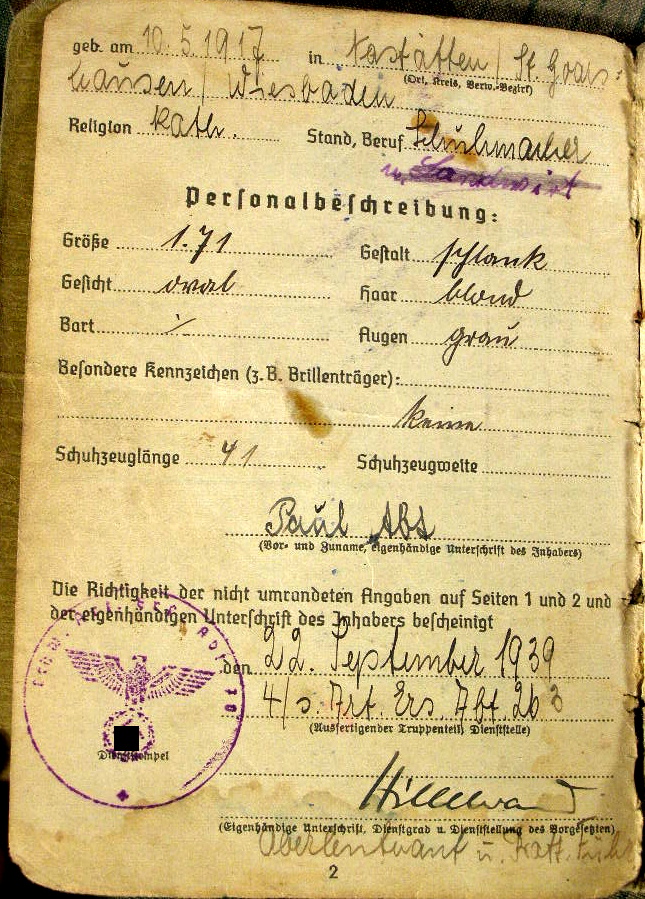 geb. am 10.5.1917 in Nastätten / St. Goars=
(Ort, Kreis, Verw.-Bezirk)
hausen / Wiesbaden
Religion kath. Stand, Beruf Schuhmacher
u. Landwirt
Personalbeschreibung:
Größe 1.71 Gestalt schlank
Gesicht oval Haar blond
Bart ⁒ Augen grau
Besondere Kennzeichen (z.B. Brillenträger):
keine
Schuhzeuglänge 41 Schuhzeugweite
Paul Abt
(Vor- und Zuname, eigenhändige Unterschrift des Inhabers)
Die Richtigkeit der nicht umrandeten Angaben auf Seiten 1 und 2 und
der eigenhändigen Unterschrift des Inhabers bescheinigt
den 22. September 1939
4/s. Art. Ers. Abt. 263
(Ausfertigender Truppenteil, Dienststelle)
Dienststempel
(Eigenhändige Unterschrift, Dienstgrad u. Dienststellung des Vorgesetzten)
Oberleutnant u. Batt.
2